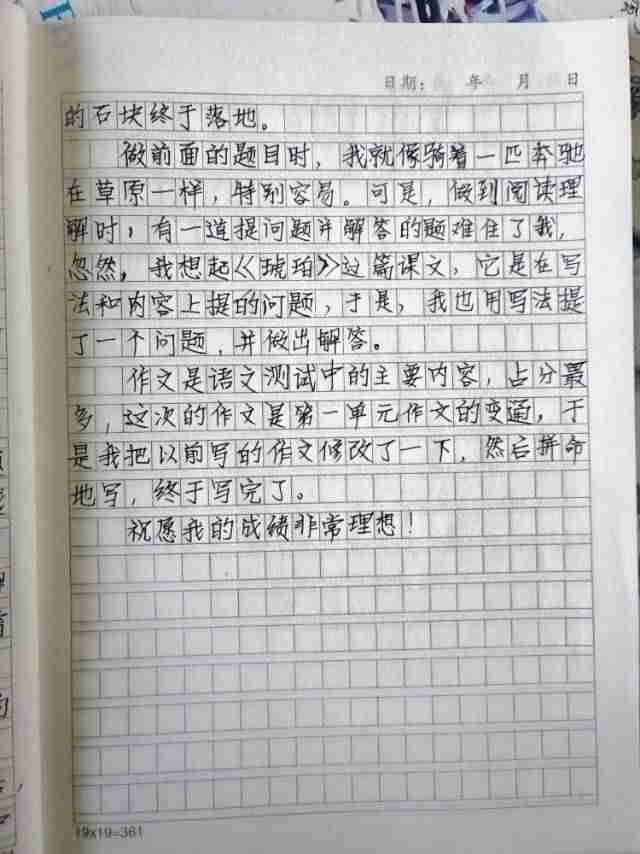 日期： 年 月 日
的石块终于落地。
做前面的题目时，我就像骑着一匹奔驰
在草原一样，特别容易。可是，做到阅读理
解时，有一道提问题并解答的题难住了我，
忽然，我想起《琥珀》这篇课文，它是在写
法和内容上提的问题，于是，我也用写法提
了一个问题，并做出解答。
作文是语文测试中的主要内容，占分最
多，这次的作文是第一单元作文的变通，于
是我把以前写的作文修改了一下，然后拼命
地写，终于写完了。
祝愿我的成绩非常理想！
19x19=361